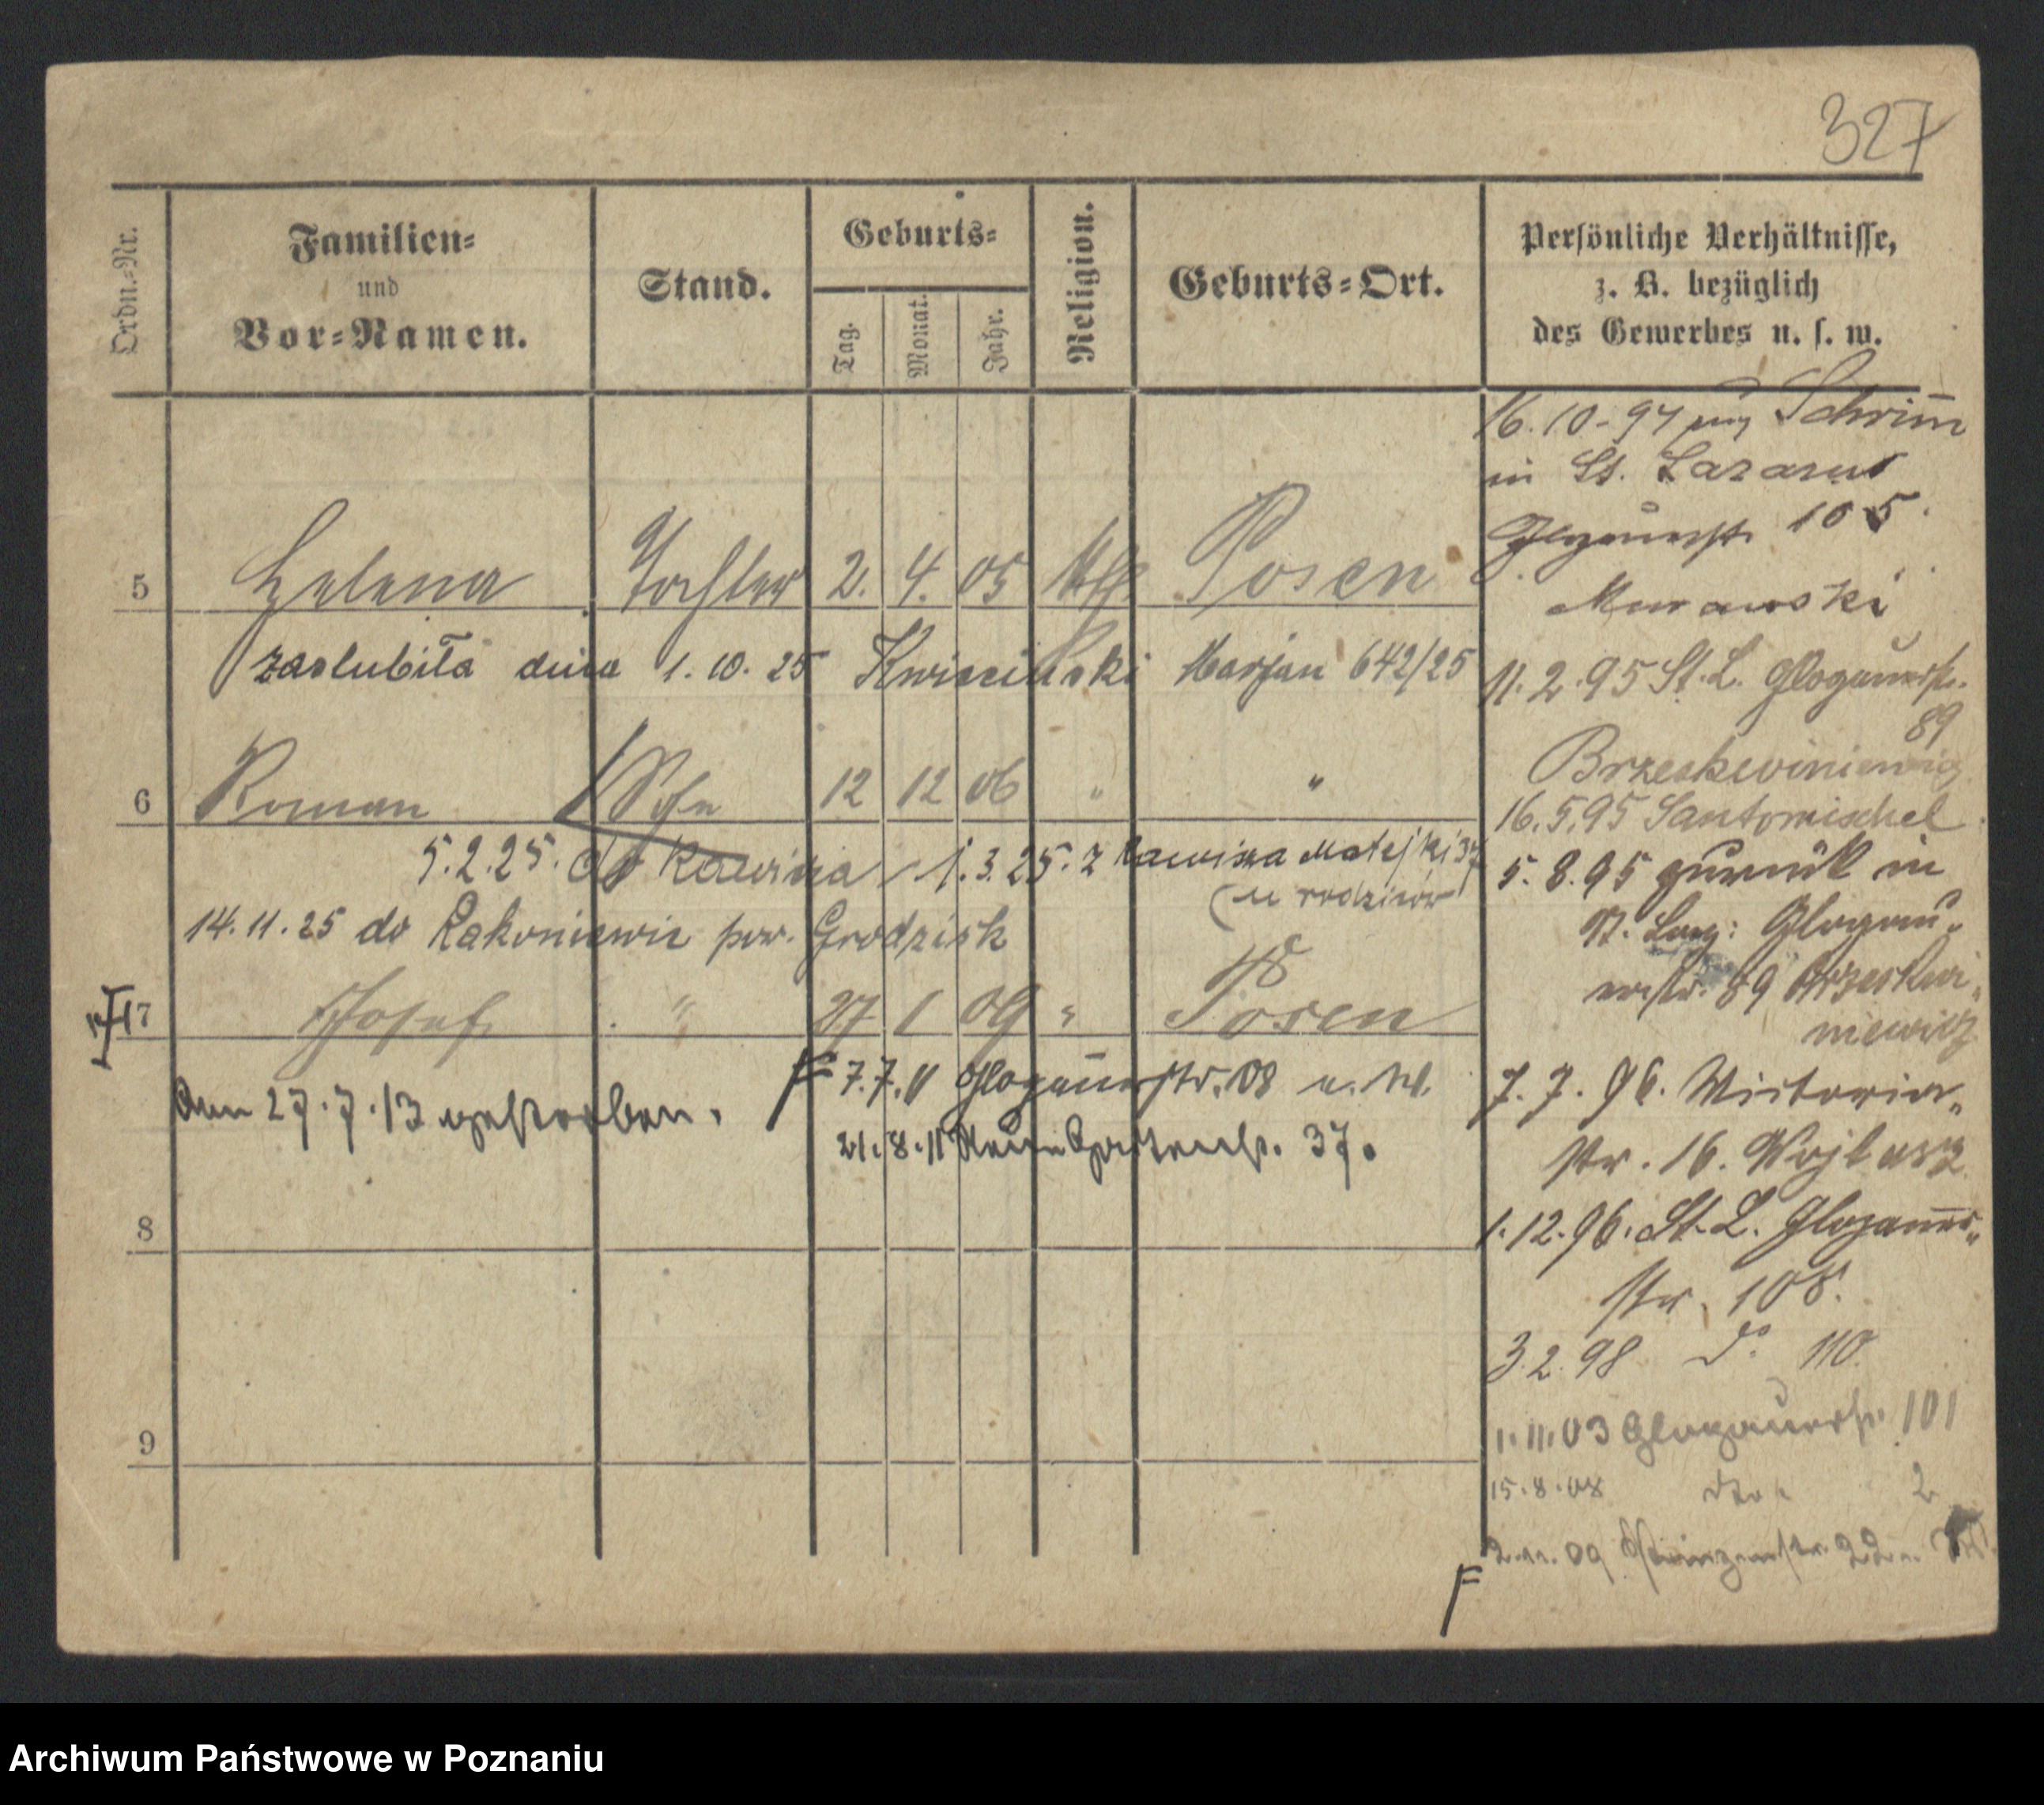 327
Ordn.-Nr.
Familien-
und
Vor-Namen.
Stand.
Geburts-
Tag.
Monat.
Jahr.
Religion.
Geburts-Ort.
Persönliche Verhältnisse,
z. B. bezüglich
des Gewerbes u. s. w.
5 Helena Tochter 2. 4. 05 Posen
zaslubiła dnia 1. 10. 25 Marjan 642/25
6 Roman Sohn 12 12 06 " "
5.2.25. do Rawicza 1.3.25. z Rawicza Matejki 37
(u rodziców
14.11.25 do Rakoniewic pow. Grodzisk
7 Josef " 27 1 09 " Posen
F 7.7.11 Glogauerstr. 108
den 27.7.13 gestorben.
21.8.11 Neue Gartenstr. 37.
8
9
16.10.94 Schrimm
in St. Lazarus
Glogauerstr. 105
Murawski
11.2.95 St. L. Glogauerstr.
89
16.5.95 Santomischel
5.8.95 zurück in
St. Laz: Glogau-
erstr. 89 Brzeskwi-
niewicz
7.7.96. Wictoria-
str. 16. Wojtasz
1.12.96. St. L. Glogauer-
str. 108.
3.2.98 do 110
1.11.03 Glogauerstr. 101
15.8.08 dto. 2
09
F
Archiwum Państwowe w Poznaniu